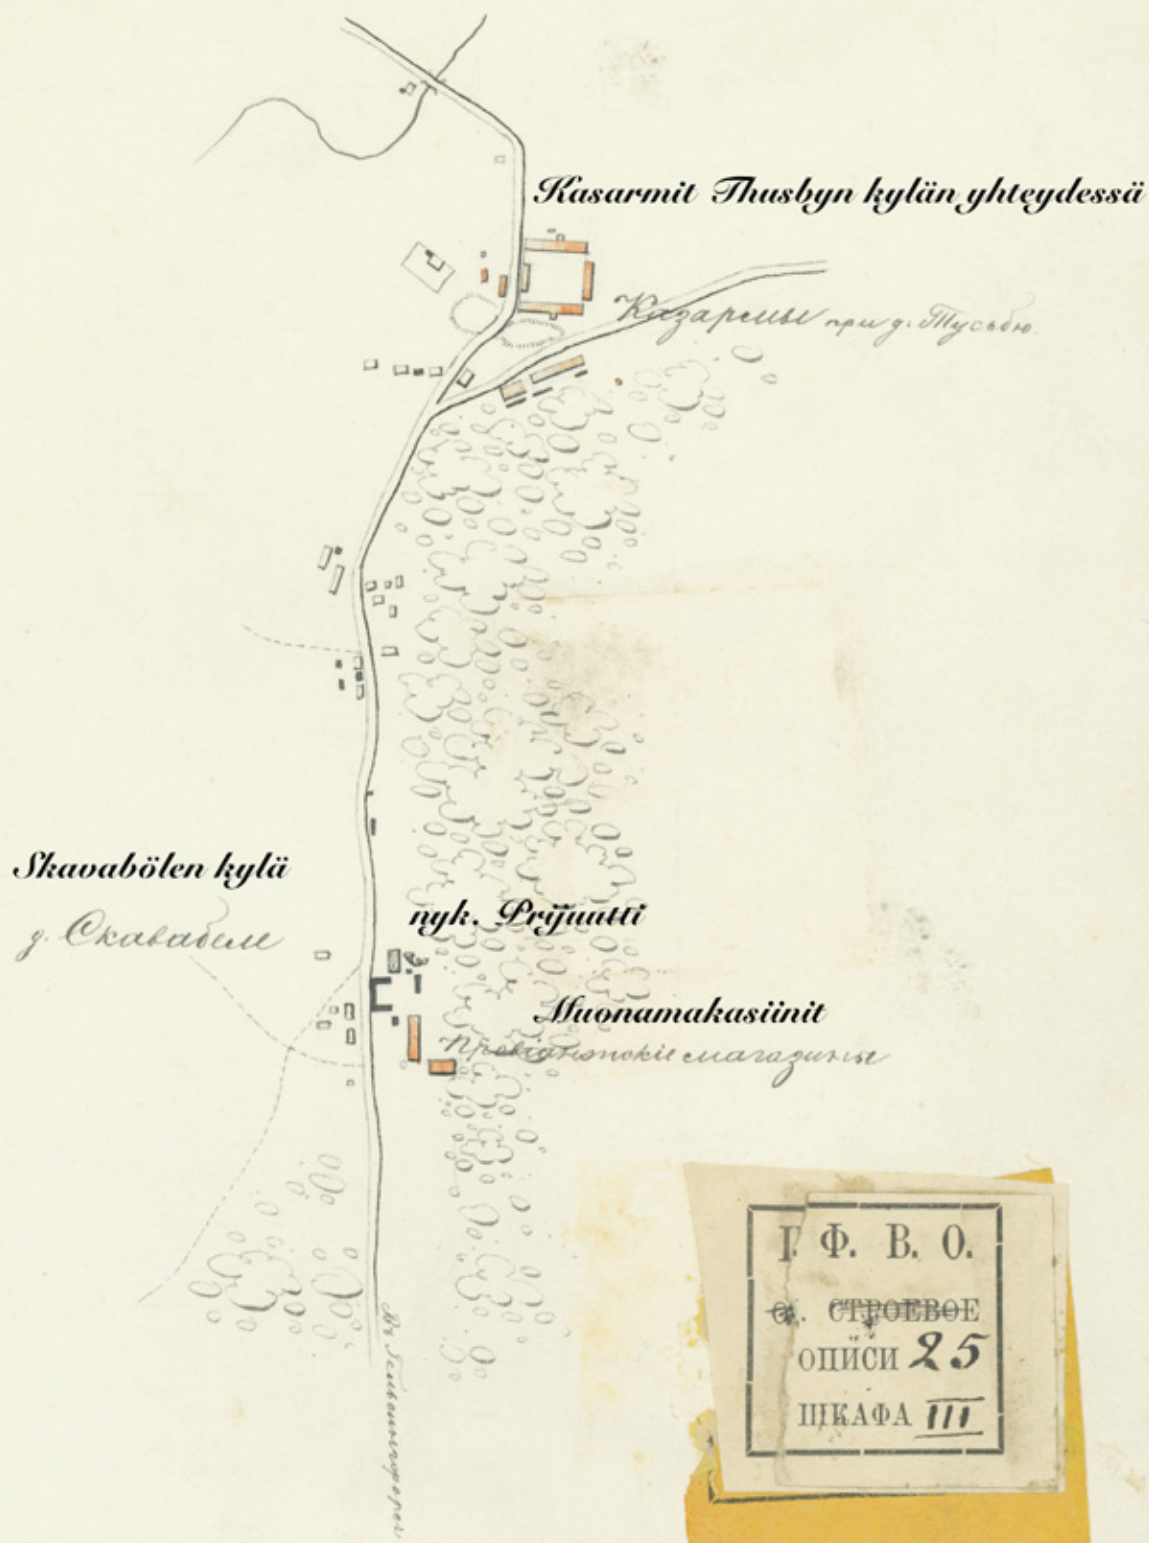 Kasarmit Thusbyn kylän yhteydessä
Казармы при д. Тусьбю.
Skavabölen kylä
д. Скавабеле
nyk. Prijuutti
Muonamakasiinit
Провiантскiе магазины
Въ Гельсингфорсъ
Г. Ф. В. О.
СТРОЕВОЕ
ОПИСИ 25
ШКАФА III